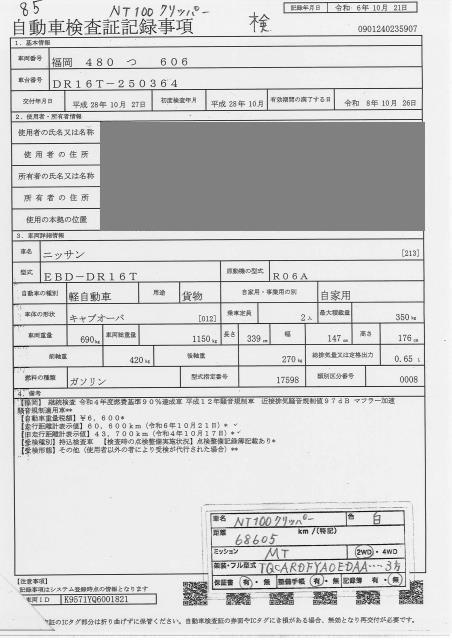 85 NT100 クリッパー 検
記録年月日 令和 6年10月21日
自動車検査証記録事項
0901240235907
1．基本情報
車両番号 福岡 480 つ 606
車台番号 DR16T-250364
交付年月日 平成 28年 10月 27日 初度検査年月 平成 28年 10月 有効期間の満了する日 令和 8年 10月 26日
2．使用者・所有者情報
使用者の氏名又は名称
使用者の住所
所有者の氏名又は名称
所有者の住所
使用の本拠の位置
3．車両詳細情報
車名 ニッサン [213]
型式 EBD-DR16T 原動機の型式 R06A
自動車の種別 軽自動車 用途 貨物 自家用・事業用の別 自家用
車体の形状 キャブオーバ [012] 乗車定員 2人 最大積載量 350kg
車両重量 690kg 車両総重量 1150kg 長さ 339cm 幅 147cm 高さ 176cm
前軸重 420kg 後軸重 270kg 総排気量又は定格出力 0.65L
燃料の種類 ガソリン 型式指定番号 17598 類別区分番号 0008
4．備考
【福岡】 継続検査 令和4年度燃費基準90%達成車 平成12年騒音規制車 近接排気騒音規制値97dB マフラー加速
騒音規制適用車**
【自動車重量税額】¥6,600*
【走行距離計表示値】60,600km（令和6年10月21日）*
【旧走行距離計表示値】43,700km（令和4年10月17日）*
【受検種別】持込検査車 【検査時の点検整備実施状況】点検整備記録簿記載あり*
【受検形態】その他（使用者以外の者により受検が代行された場合）**
車名 NT100クリッパー 色 白
距離 68605 km /(特記)
ミッション MT 2WD・4WD
架装・フル型式 TQCARDFYAOEDAA---3方
保証書 有・無 整備手帳 有・無 記録簿 有・無
【注意事項】
記録事項はシステム登録時点の情報となります
車両ID K9571YQ6001821
証のICタグ部分は折り曲げずに保管ください。自動車検査証の券面やICタグにき損がある場合、無効となり再交付が必要です。